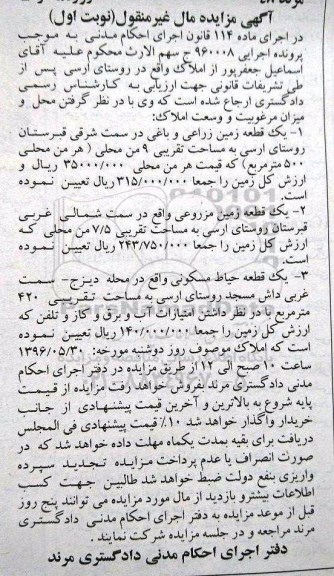 آگهی مزایده مال غیرمنقول(نوبت اول)
در اجرای ماده ۱۱۴ قانون اجرای احکام مدنی به موجب
پرونده اجرایی ۹۶۰۰۰۸ ح سهم الارث محکوم علیه آقای
اسماعیل جعفرپور از املاک واقع در روستای ارسی پس از
طی تشریفات قانونی جهت ارزیابی به کارشناس رسمی
دادگستری ارجاع شده است که وی با در نظر گرفتن محل و
میزان مرغوبیت و وسعت املاک:
۱- یک قطعه زمین زراعی و باغی در سمت شرقی قبرستان
روستای ارسی به مساحت تقریبی ۹ من محلی ( هر من محلی
۵۰۰ مترمربع) که قیمت هر من محلی ۳۵۰۰۰/۰۰۰ ریال و
ارزش کل زمین را جمعا ۳۱۵/۰۰۰/۰۰۰ ریال تعیین نموده
است.
۲- یک قطعه زمین مزروعی واقع در سمت شمالی غربی
قبرستان روستای ارسی به مساحت تقریبی ۷/۵ من محلی که
ارزش کل زمین را جمعا ۲۴۳/۷۵۰/۰۰۰ ریال تعیین نموده
است.
۳- یک قطعه حیاط مسکونی واقع در محله دیزج- سمت
غربی داش مسجد روستای ارسی به مساحت تقریبی ۴۲۰
مترمربع با در نظر داشتن امتیازات آب و برق و گاز و تلفن که
ارزش کل زمین را جمعا ۱۴۰/۰۰۰/۰۰۰ ریال تعیین نموده
است که املاک موصوف روز دوشنبه مورخه: ۱۳۹۶/۰۵/۳۰
ساعت ۱۰ صبح الی ۱۲ از طریق مزایده در دفتر اجرای احکام
مدنی دادگستری مرند بفروش خواهد رفت مزایده از قیمت
پایه شروع به بالاترین و آخرین قیمت پیشنهادی از جانب
خریدار واگذار خواهد شد ۱۰٪ قیمت پیشنهادی فی المجلس
دریافت برای بقیه بمدت یکماه مهلت داده خواهد شد که در
صورت انصراف یا عدم پرداخت مزایده تجدید سپرده
واریزی بنفع دولت ضبط خواهد شد طالبین جهت کسب
اطلاعات بیشتر و بازدید از مال مورد مزایده می توانند پنج روز
قبل از موعد مزایده به دفتر اجرای احکام مدنی دادگستری
مرند مراجعه و در جلسه مزایده شرکت نمایند.
دفتر اجرای احکام مدنی دادگستری مرند